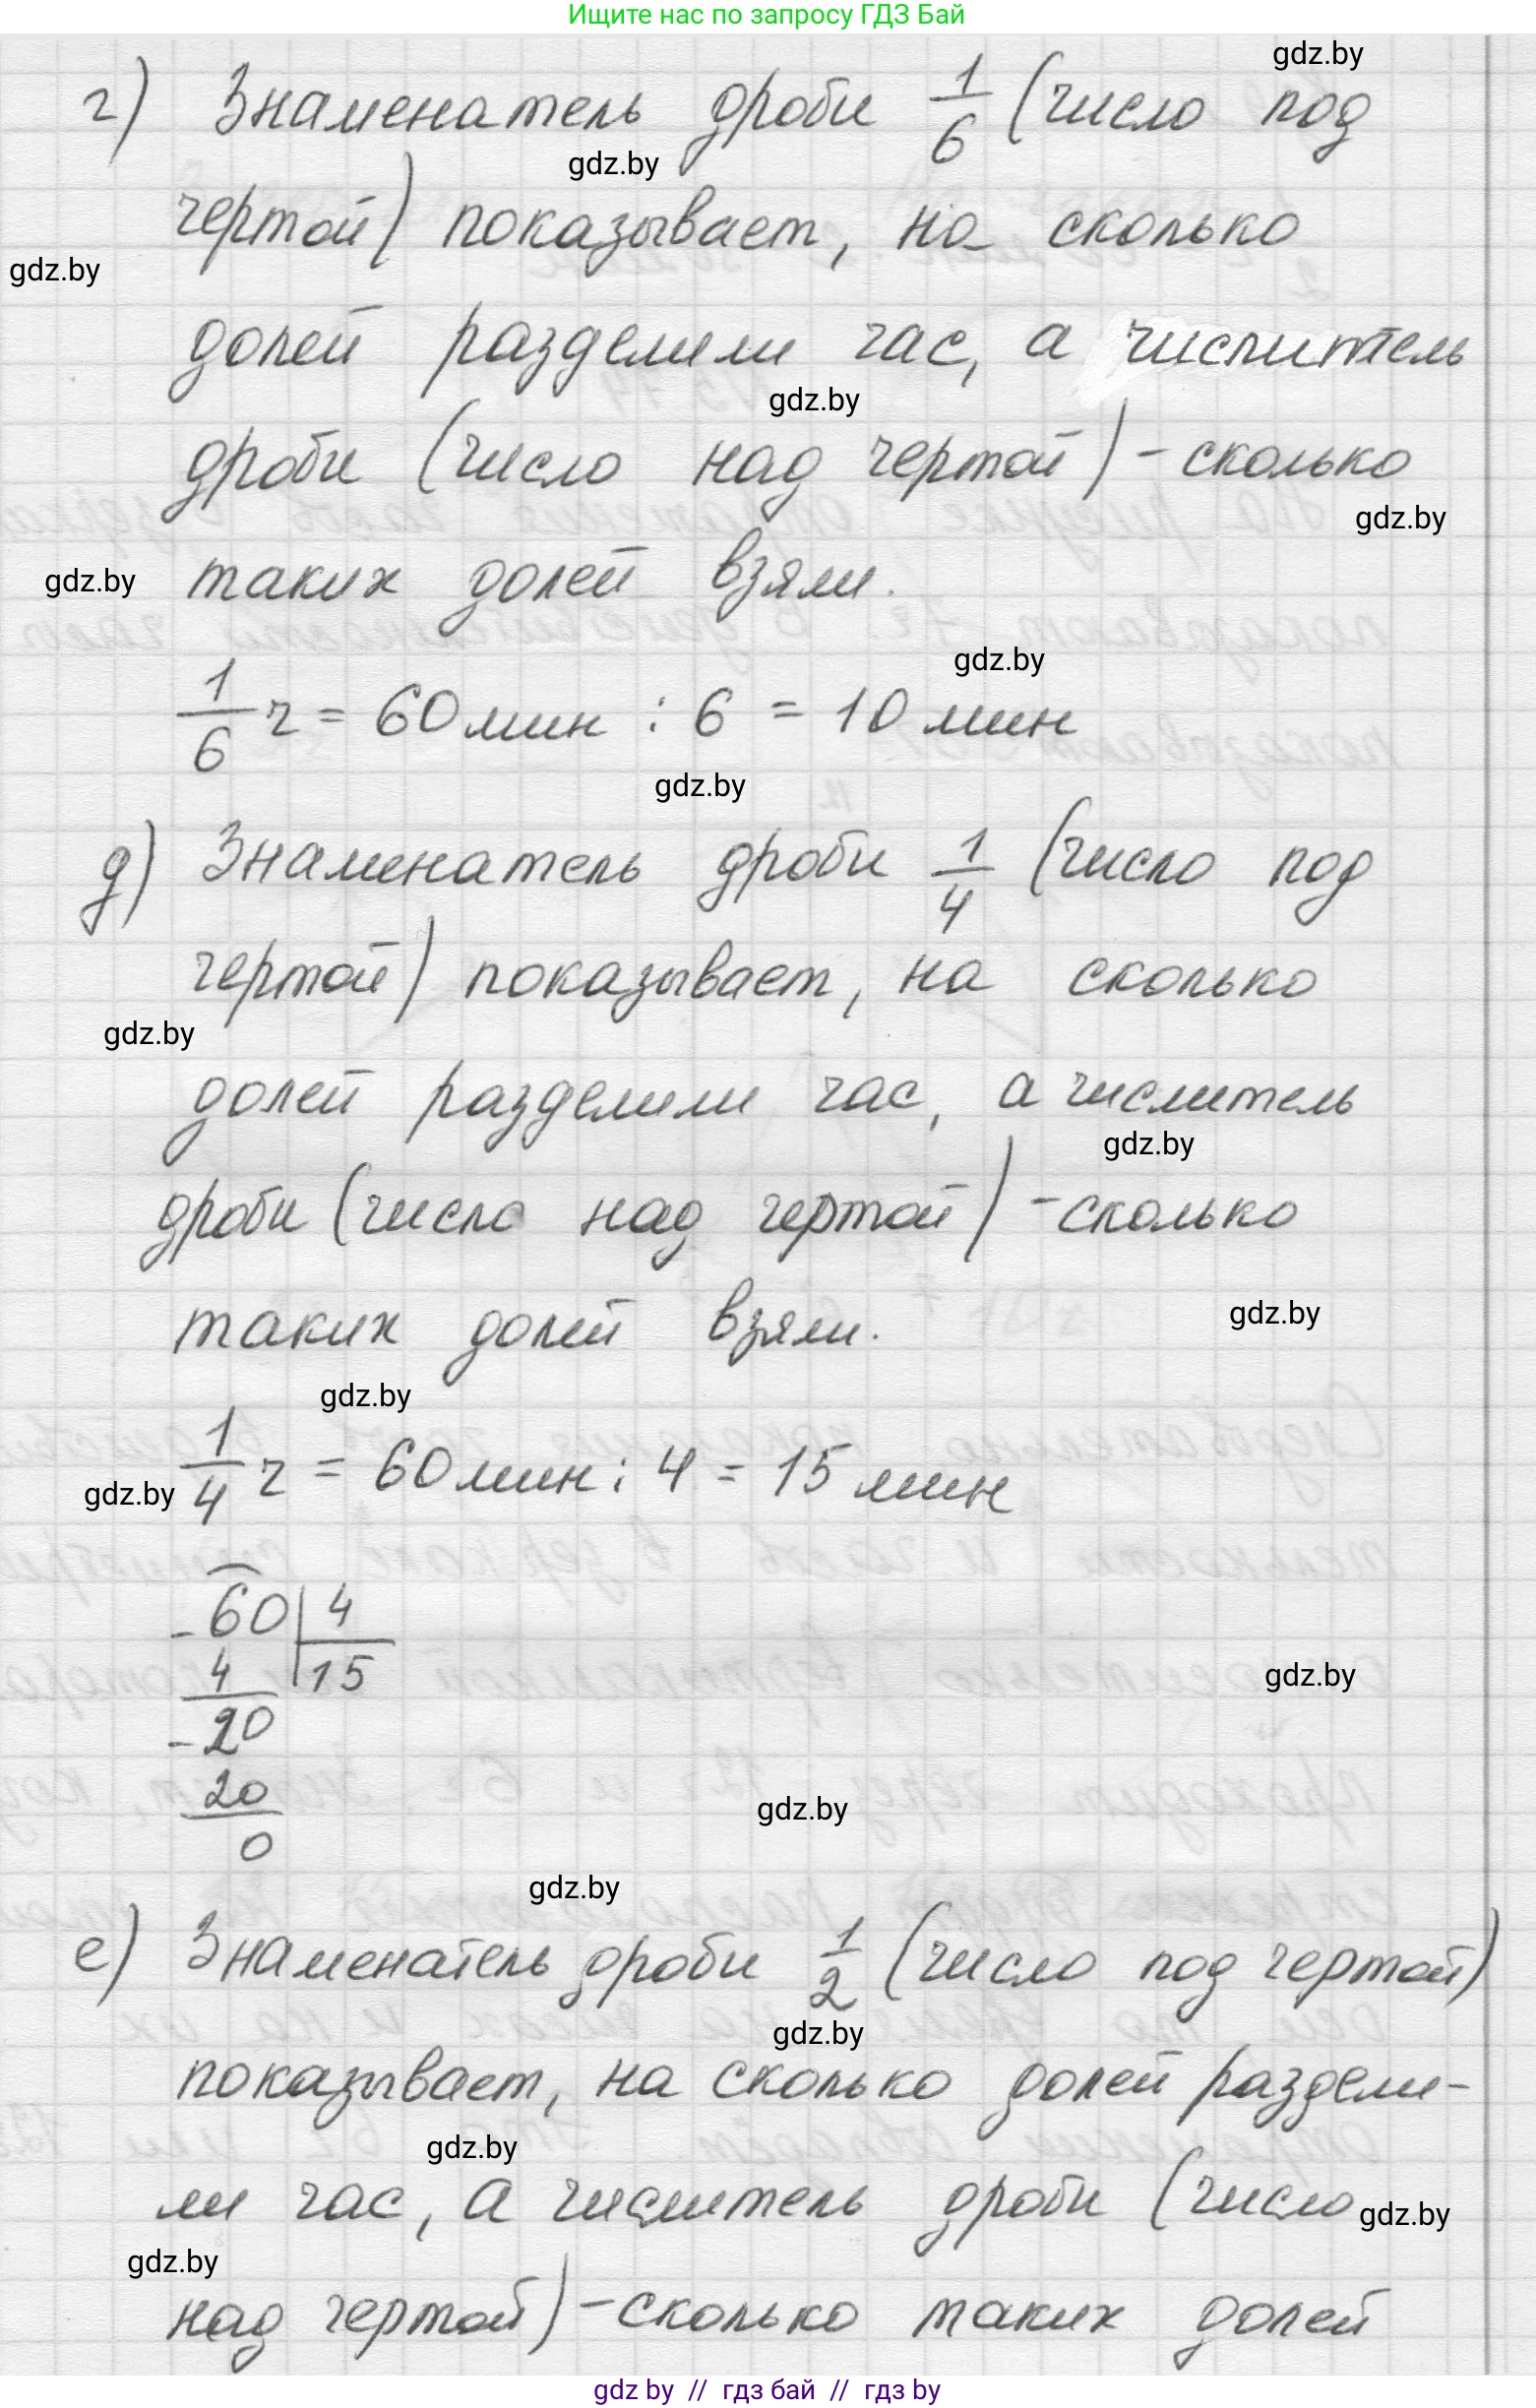 Ищите нас по запросу ГДЗ Бай
gdz.by
г) Знаменатель дроби 1/6 (число под
gdz.by
чертой) показывает, на сколько
gdz.by
долей разделили час, а числитель
gdz.by
дроби (число над чертой) - сколько
gdz.by
gdz.by
таких долей взяли.
gdz.by
1/6 ч = 60 мин : 6 = 10 мин
gdz.by
д) Знаменатель дроби 1/4 (число под
чертой) показывает, на сколько
gdz.by
долей разделили час, а числитель
gdz.by
дроби (число над чертой) - сколько
gdz.by
таких долей взяли.
gdz.by
1/4 ч = 60 мин : 4 = 15 мин
gdz.by
-60 | 4
4 | 15
gdz.by
-20
20
gdz.by
0
gdz.by
е) Знаменатель дроби 1/2 (число под чертой)
gdz.by
показывает, на сколько долей раздели-
gdz.by
ли час, а числитель дроби (число
gdz.by
gdz.by
над чертой) - сколько таких долей
gdz by // гдз бай // гдз by